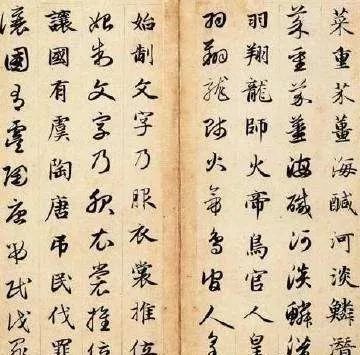 菜重芥薑海鹹河淡鱗潛
菜重芥薑海鹹河淡鱗
羽翔龍師火帝鳥官人皇
羽翔龍師火帝鳥官人皇
始制文字乃服衣裳推位
始制文字乃服衣裳推位
讓國有虞陶唐吊民伐罪
讓國有虞陶唐吊民伐罪